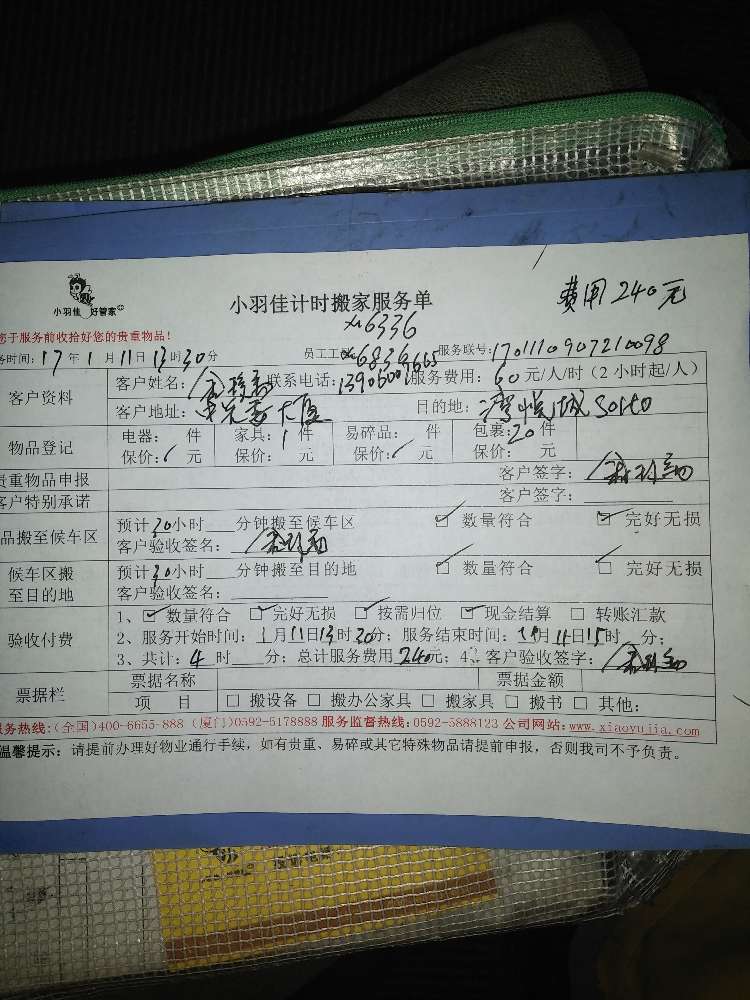 小羽佳 好管家
小羽佳计时搬家服务单
费用240元
您于服务前收拾好您的贵重物品！
xm6336
务时间：17年1月11日13时30分 员工工 xm6834 服务联号：1701110907210098
客户资料
客户姓名： 联系电话： 服务费用：60元/人/时（2小时起/人）
客户地址： 大厦 目的地：湾悦城SOHO
物品登记
电器： 件 家具：1件 易碎品： 件 包裹：20件
保价： 元 保价： 元 保价： 元 保价： 元
贵重物品申报 客户签字：
客户特别承诺 客户签字：
品搬至候车区
预计30小时 分钟搬至候车区 ☑ 数量符合 ☑ 完好无损
客户验收签名：
候车区搬至目的地
预计30小时 分钟搬至目的地 ☑ 数量符合 ☑ 完好无损
客户验收签名：
验收付费
1、☑数量符合 ☑完好无损 ☑按需归位 ☑现金结算 □ 转账汇款
2、服务开始时间：1月11日13时30分；服务结束时间：1月11日15时 分；
3、共计：4时 分；总计服务费用240元；4、客户验收签字：
票据栏
票据名称 票据金额
项 目 □ 搬设备 □ 搬办公家具 □ 搬家具 □ 搬书 □ 其他：
服务热线：（全国）400-6655-888（厦门）0592-5178888 服务监督热线：0592-5888123 公司网站：www.xiaoyujia.com
温馨提示：请提前办理好物业通行手续，如有贵重、易碎或其它特殊物品请提前申报，否则我司不予负责。